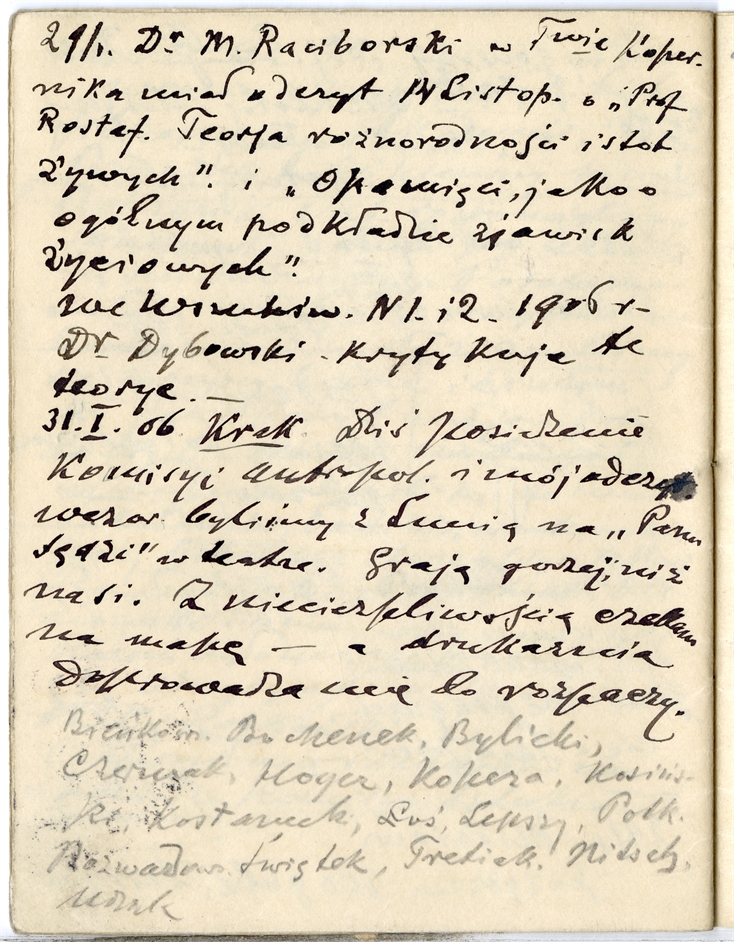 29/1. Dr M. Raciborski w Twie Koper-
nika miał odczyt 14 Listop. o „Prof
Rostaf. Teorja różnorodności istot
żywych". i „O pamięci, jako o
ogólnym podkładzie zjawisk
życiowych".
we N 1. i 2. 1906 r-
Dr Dybowski - krytykuje te
teorye. —
31.I.06 Krak. Dziś posiedzenie
Komisyi antropol. i mój odczyt.
wczor. byliśmy z na „Panu
sędzi" w teatrze. Grają gorzej, niż
nasi. Z niecierpliwością czekam
na mapę — a drukarnia
doprowadza mię do rozpaczy.
Bieńkow. Bochenek, Bylicki,
Czermak, Hoyer, Kopera, Kosińs-
ki, Kostanecki, Łoś, Lepszy, Potk.
Rozwadow. Świętek, Tretiak. Nitsch,